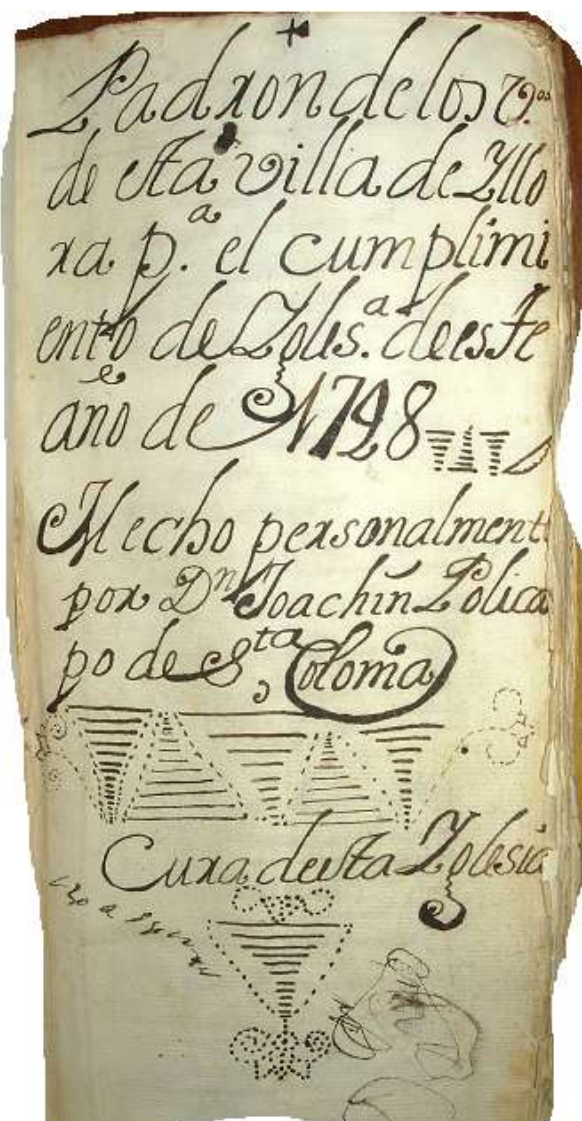 Padron de los V.os
de esta villa de Yllo
ra p.a el cumplimi
ento de Ygles.a de este
año de 1798
Hecho personalment
por Dn Joachin Polica
po de Sta Coloma
Cura de esta Yglesia